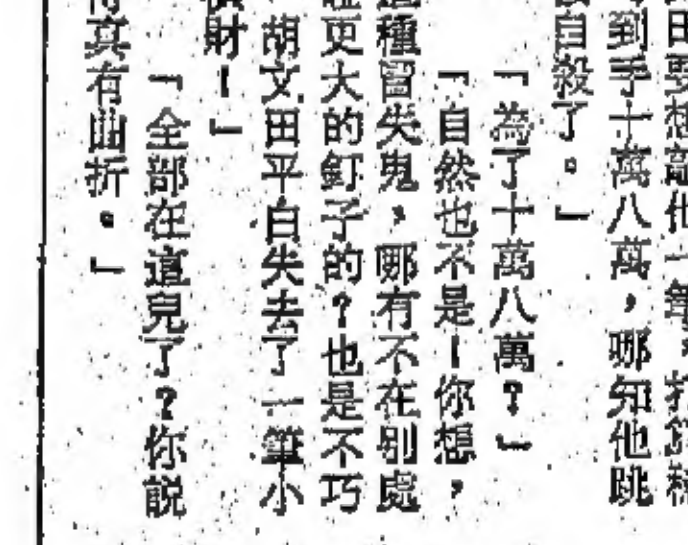 田要想敲他一筆，打算
到手十萬八萬，哪知他跳
自殺了。」
「為了十萬八萬？」
「自然也不是！你想，
種冒失鬼，哪有不在別處
更大的釘子的？也是不巧
胡文田平白失去了一筆小
財！」
「全部在這兒了？你說
真有曲折。」